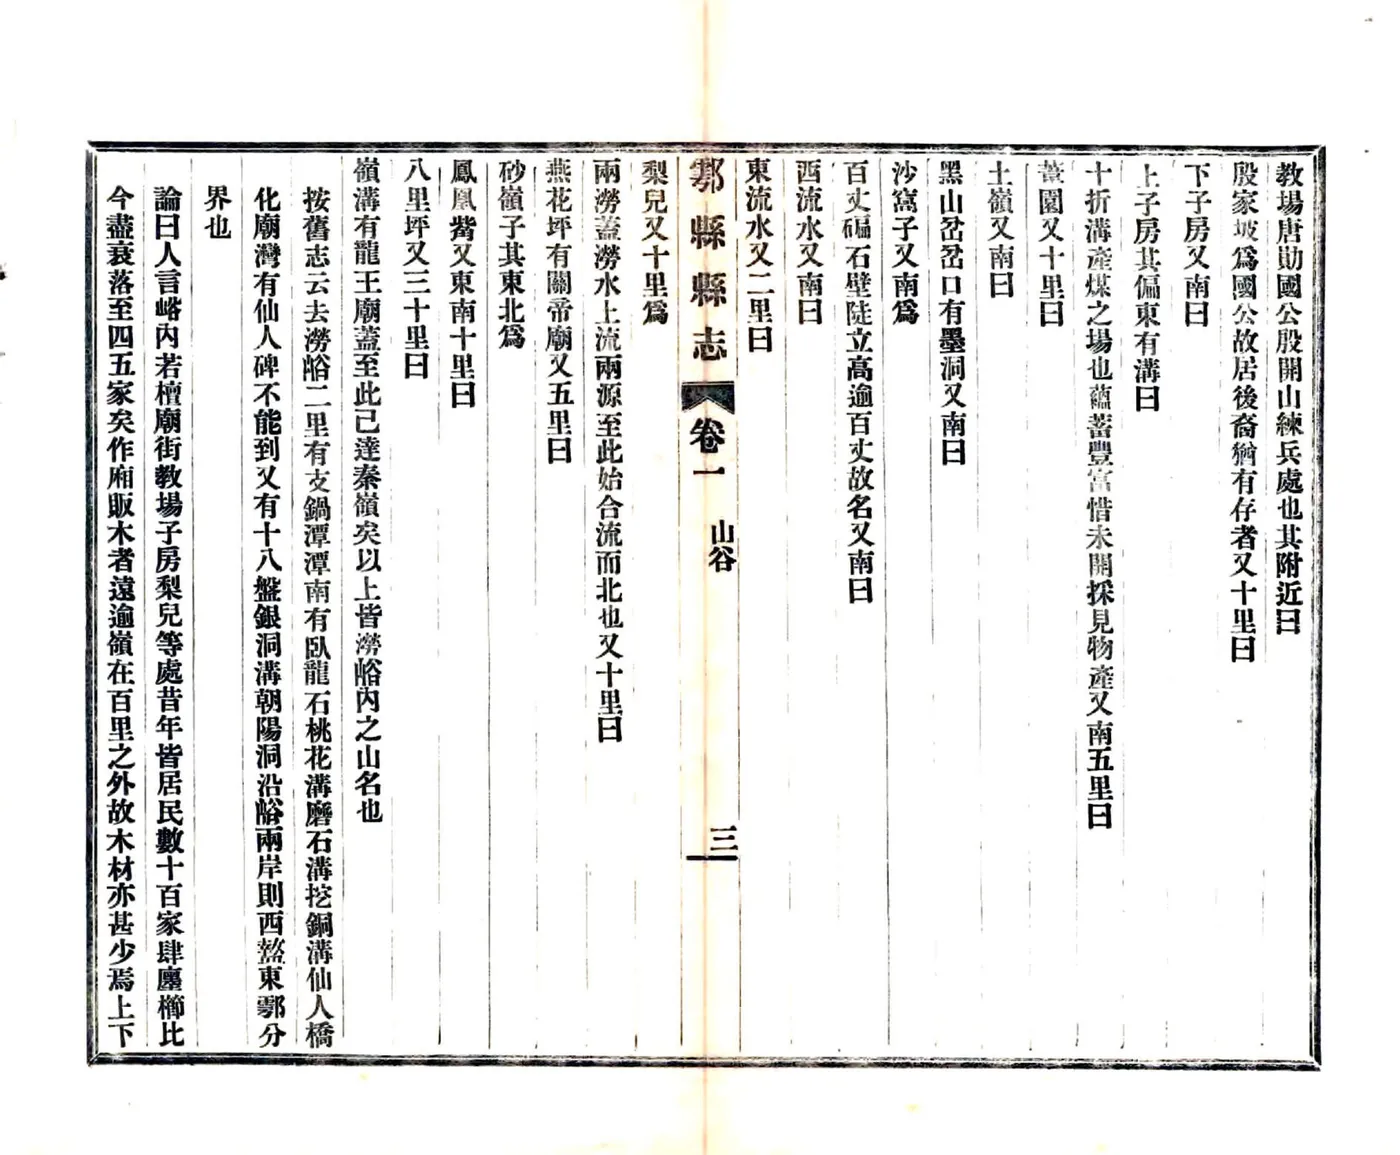 教場唐勛國公殷開山練兵處也其附近曰
殷家坡爲國公故居後裔猶有存者又十里曰
下子房又南曰
上子房其偏東有溝曰
十折溝產煤之場也蘊蓄豐富惜未開採見物產又南五里曰
葦園又十里曰
土嶺又南曰
黑山岔岔口有墨洞又南曰
沙窩子又南爲
百丈碥石壁陡立高逾百丈故名又南曰
西流水又南曰
東流水又二里曰
鄠縣縣志
卷一
山谷
三
梨兒又十里爲
兩澇蓋澇水上流兩源至此始合流而北也又十里曰
燕花坪有關帝廟又五里曰
砂嶺子其東北爲
鳳凰觜又東南十里曰
八里坪又三十里曰
嶺溝有龍王廟蓋至此已達秦嶺矣以上皆澇峪內之山名也
按舊志云去澇峪二里有支鍋潭潭南有臥龍石桃花溝磨石溝挖銅溝仙人橋
化廟灣有仙人碑不能到又有十八盤銀洞溝朝陽洞沿峪兩岸則西盩東鄠分
界也
論曰人言峪內若檀廟街教場子房梨兒等處昔年皆居民數十百家肆廛櫛比
今盡衰落至四五家矣作廂販木者遠逾嶺在百里之外故木材亦甚少焉上下